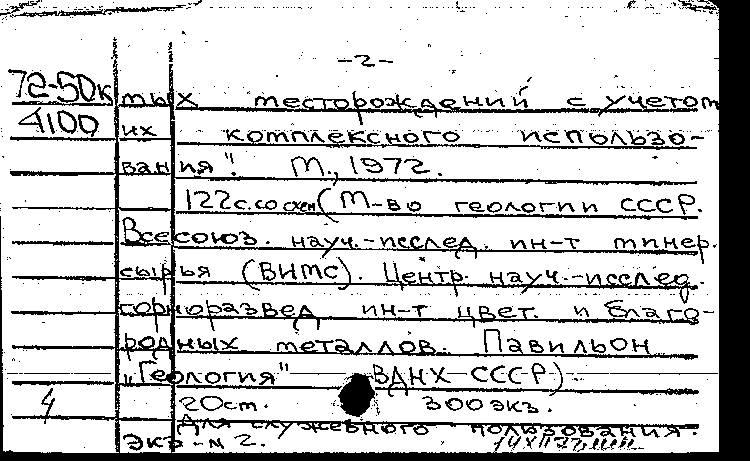 -2-
72-50к тых месторождений с учетом
4100 их комплексного использо-
вания". М., 1972.
122с.со схем(М-во геологии СССР.
Всесоюз. науч.-исслед. ин-т минер.
сырья (ВИМС). Центр. науч.-исслед.
горноразвед ин-т цвет. и благо-
родных металлов. Павильон
„Геология" ВДНХ СССР)
4 20ст. 300экз.
Для служебного пользования.
Экз-N 2.